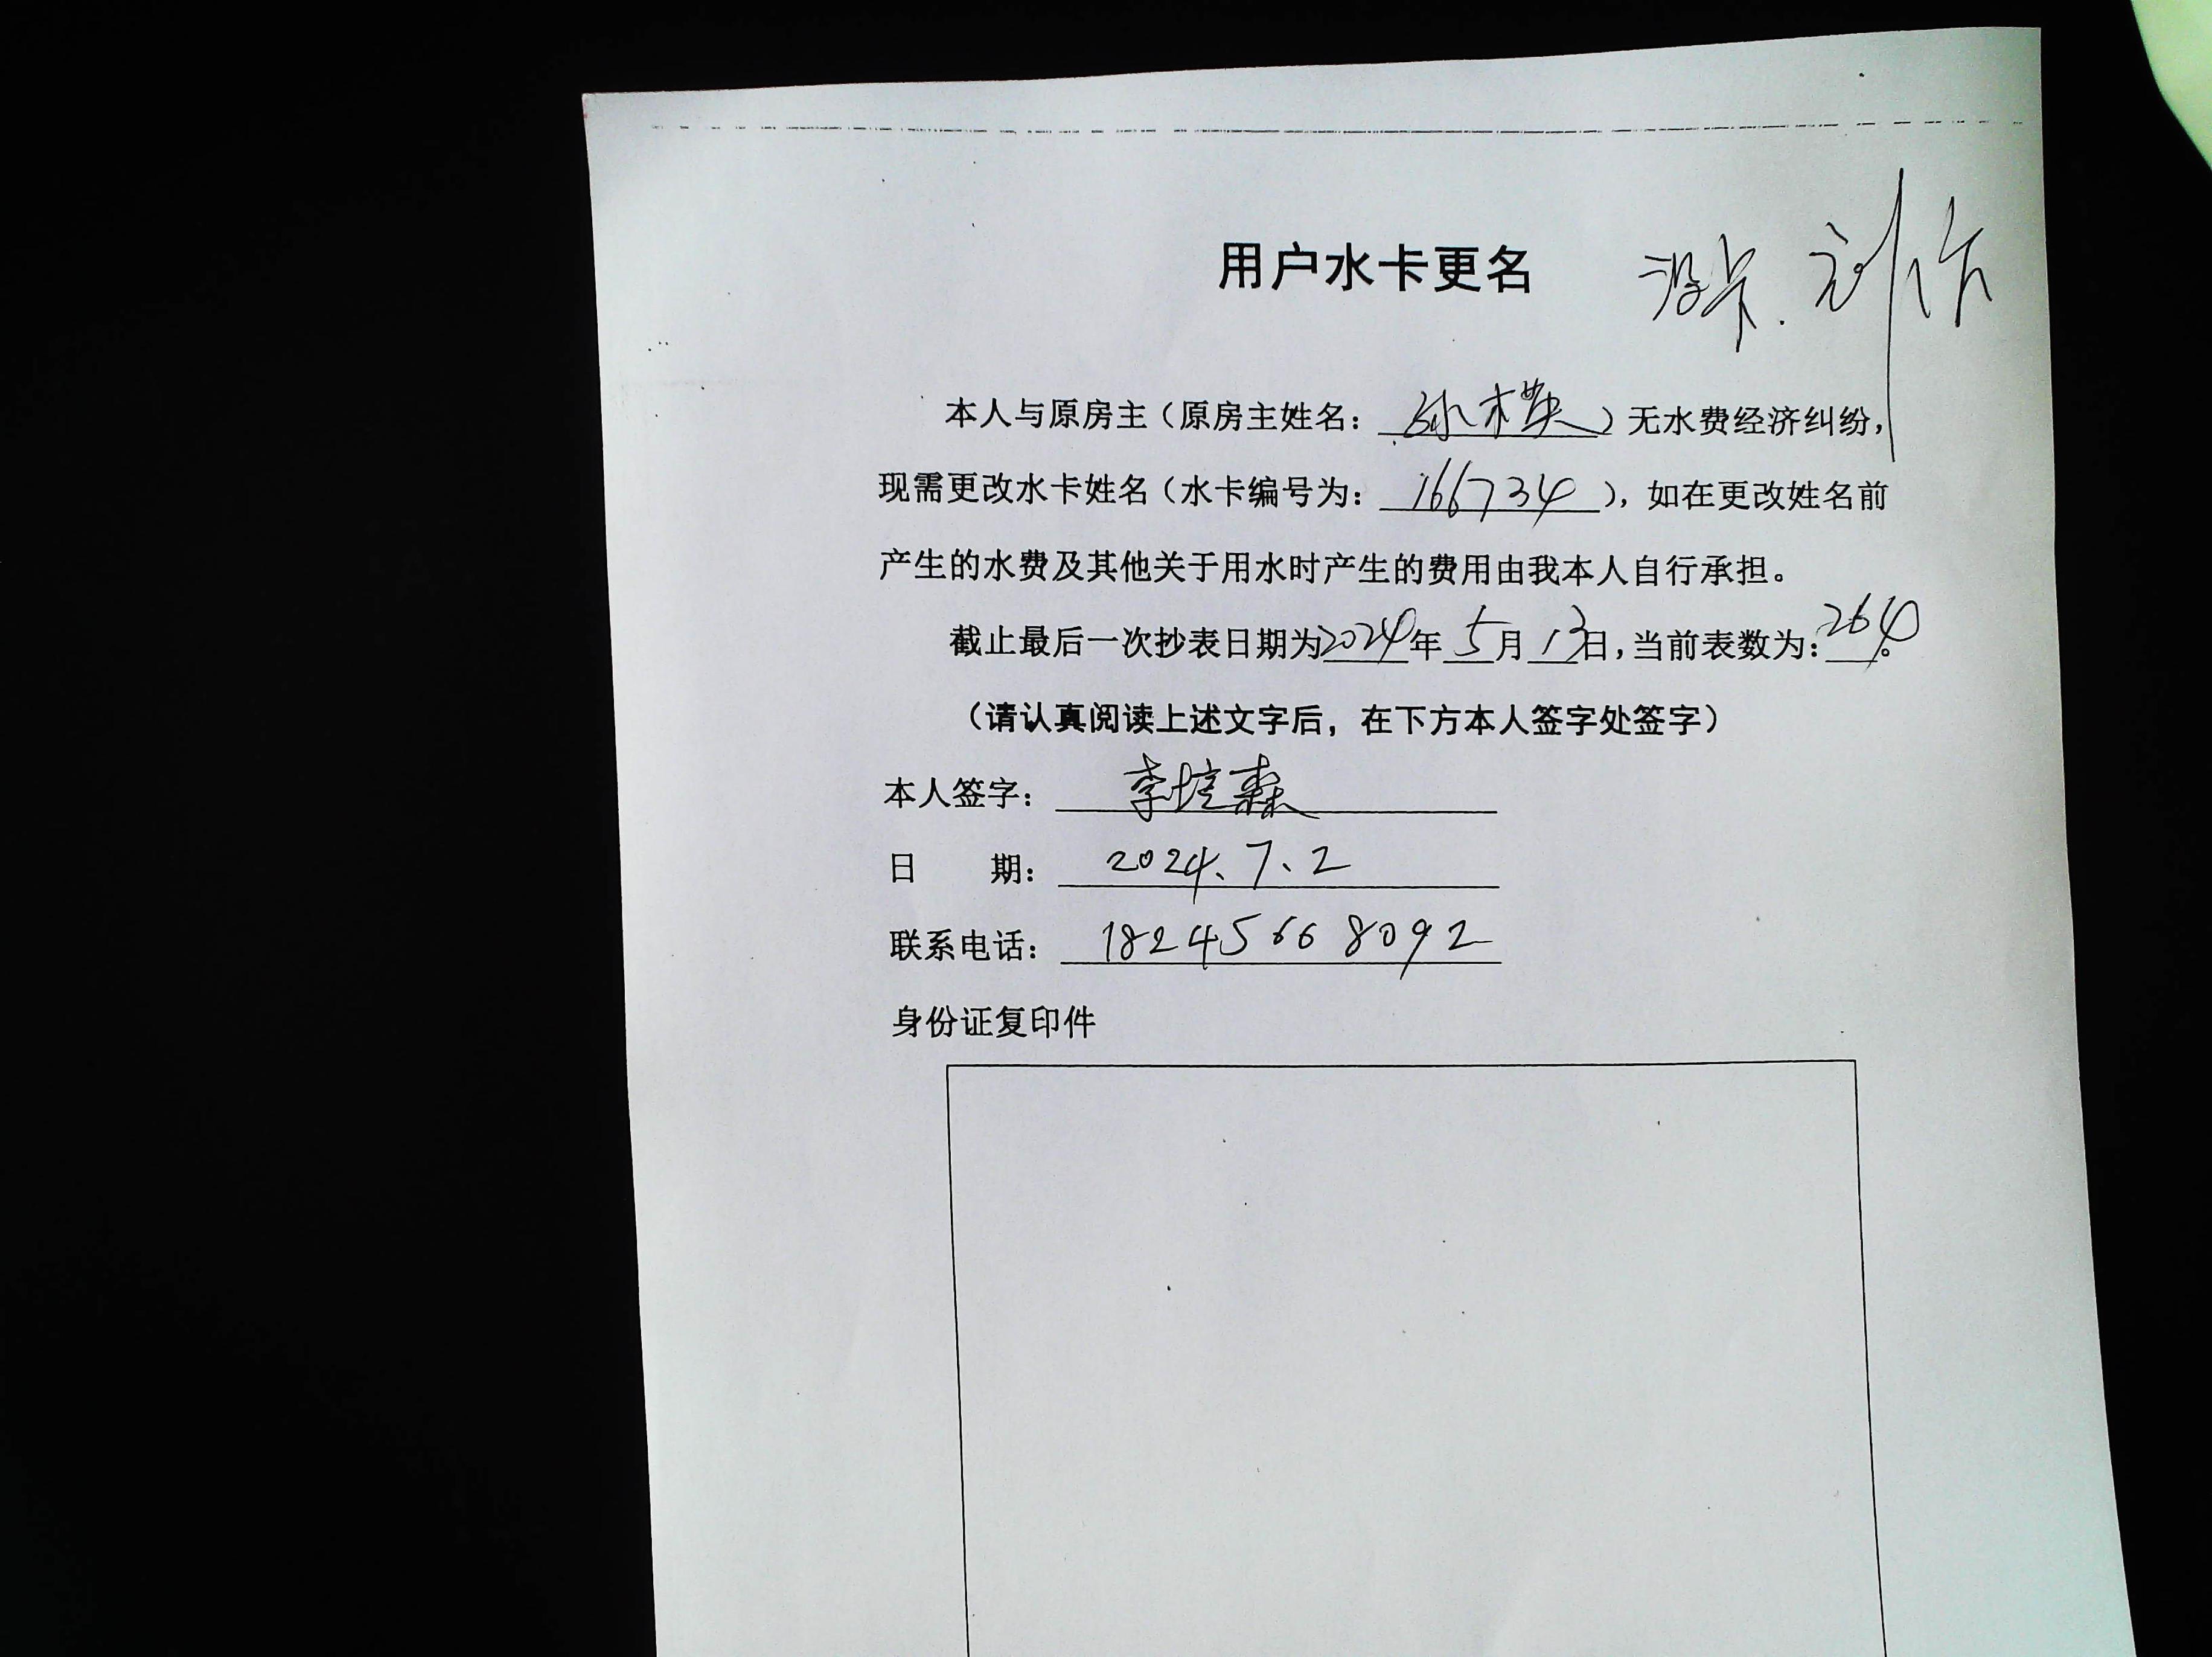 用户水卡更名
没卡.
本人与原房主（原房主姓名：）无水费经济纠纷，
现需更改水卡姓名（水卡编号为：166734），如在更改姓名前
产生的水费及其他关于用水时产生的费用由我本人自行承担。
截止最后一次抄表日期为2024年5月13日，当前表数为：264。
（请认真阅读上述文字后，在下方本人签字处签字）
本人签字：李培森
日 期：2024、7、2
联系电话：18245668092
身份证复印件